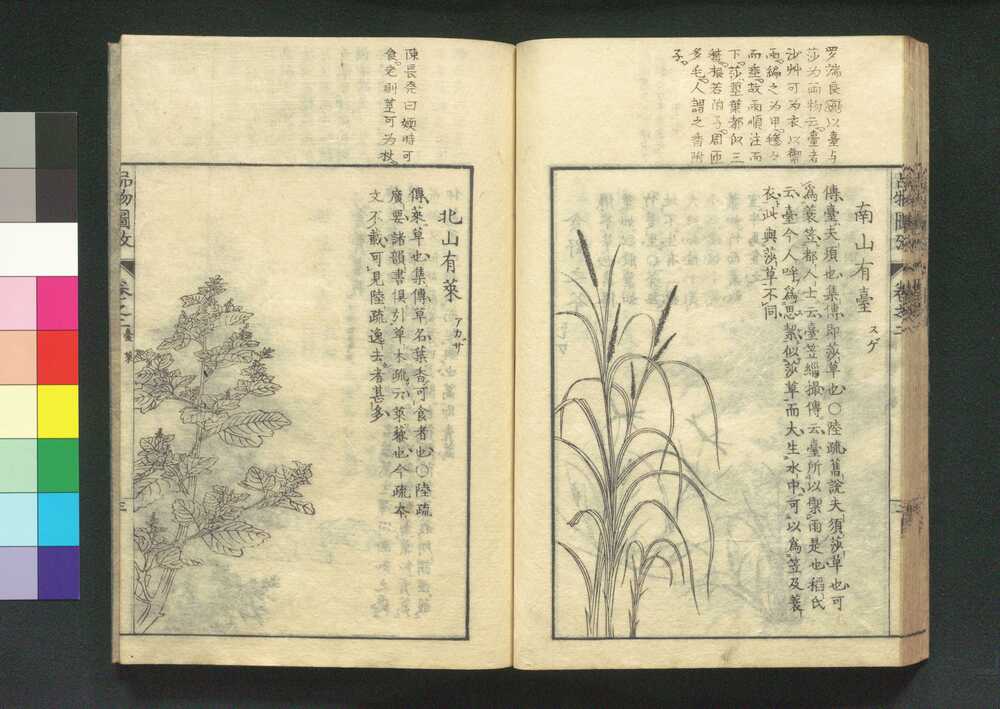 罗端良爾以臺与
莎为两物云臺者
沙艸可为衣以禦
雨編之为甲毿々
而垂故雨順注而
下莎莖葉都似三
稜根若附子周匝
多毛人謂之香附
子
南山有臺
スゲ
傳臺夫須也集傳即莎草也〇陸疏舊說夫須莎草也可
爲蓑笠都人士云臺笠緇撮傳云臺所以禦雨是也稻氏
云臺今人呼爲思絜似莎草而大生水中可以爲笠及蓑
衣此與莎草不同
品物圖攷
卷之二
陳長発曰嫩時可
食老則莖可为杖
北山有萊
アカザ
傳萊草也集傳草名葉香可食者也〇陸疏
廣要諸韻書俱引草木疏云萊藜也今疏本
文不載可見陸疏逸去者甚多
品物圖攷
卷之二
三